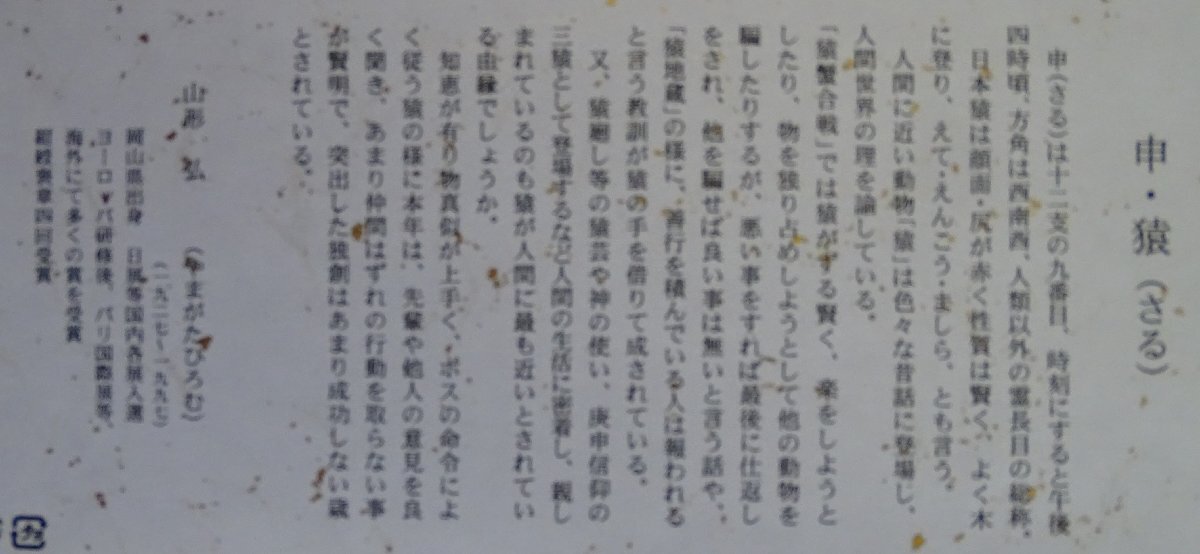 申・猿（さる）
申（さる）は十二支の九番目、時刻にすると午後
四時頃、方角は西南西、人類以外の霊長目の総称。
日本猿は顔面・尻が赤く性質は賢く、よく木
に登り、えて・えんこう・ましら、とも言う。
人間に近い動物「猿」は色々な昔話に登場し、
人間世界の理を諭している。
「猿蟹合戦」では猿がずる賢く、楽をしようと
したり、物を独り占めしようとして他の動物を
騙したりするが、悪い事をすれば最後に仕返し
をされ、他を騙せば良い事は無いと言う話や、
「猿地蔵」の様に、善行を積んでいる人は報われる
と言う教訓が猿の手を借りて成されている。
又、猿廻し等の猿芸や神の使い、庚申信仰の
三猿として登場するなど人間の生活に密着し、親し
まれているのも猿が人間に最も近いとされてい
る由縁でしょうか。
知恵が有り物真似が上手く、ボスの命令によ
く従う猿の様に本年は、先輩や他人の意見を良
く聞き、あまり仲間はずれの行動を取らない事
が賢明で、突出した独創はあまり成功しない歳
とされている。
山形 弘 （やまがたひろむ）
（一九二七～一九九七）
岡山県出身 日展等国内各展入選
ヨーロッパ研修後、パリ国際展等、
海外にて多くの賞を受賞
紺綬褒章四回受賞